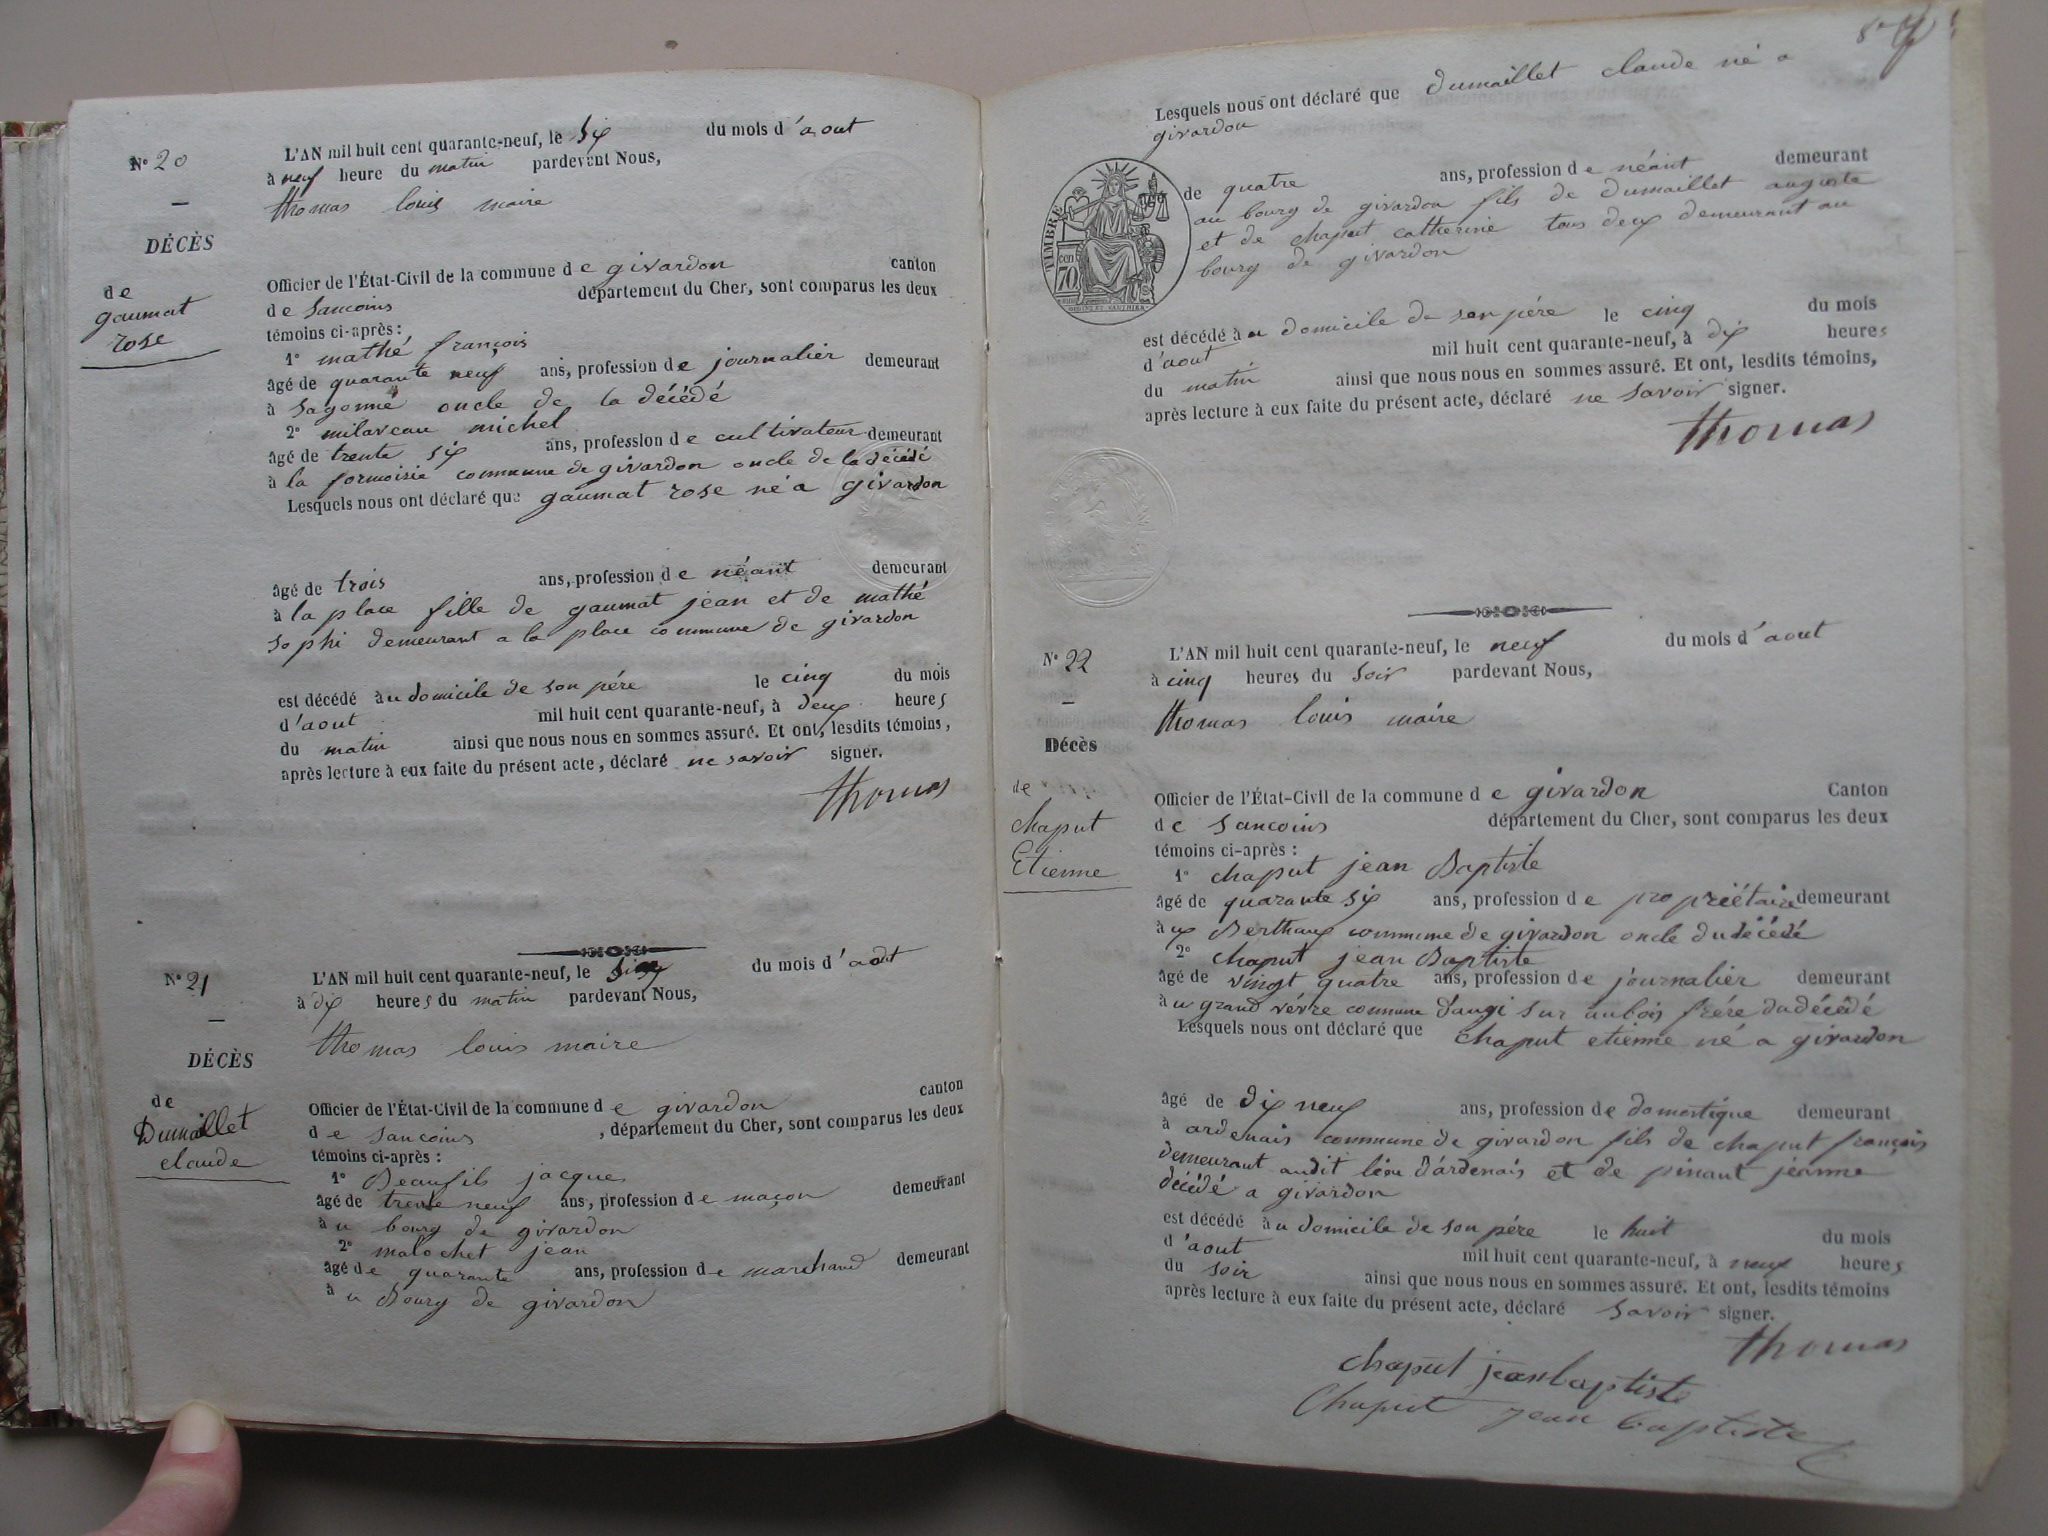 N° 20
—
DÉCÈS
de
gaumat
rose
L'AN mil huit cent quarante-neuf, le six du mois d'aout
à neuf heure du matin pardevant Nous,
thomas louis maire
Officier de l'État-Civil de la commune de givardon canton
de sancoins département du Cher, sont comparus les deux
témoins ci-après :
1° mathé françois
âgé de quarante neuf ans, profession de journalier demeurant
à sagonne oncle de la décédé
2° milaveau michel
âgé de trente six ans, profession de cultivateur demeurant
à la formoisie commune de givardon oncle de la décédé
Lesquels nous ont déclaré que gaumat rose né a givardon
âgé de trois ans, profession de néant demeurant
à la place fille de gaumat jean et de mathé
sophi demeurant a la place commune de givardon
est décédé au domicile de son pére le cinq du mois
d'aout mil huit cent quarante-neuf, à deux heures
du matin ainsi que nous nous en sommes assuré. Et ont, lesdits témoins,
après lecture à eux faite du présent acte, déclaré ne savoir signer.
thomas
N° 21
—
DÉCÈS
de
Dumaillet
claude
L'AN mil huit cent quarante-neuf, le six du mois d'aout
à dix heures du matin pardevant Nous,
thomas louis maire
Officier de l'État-Civil de la commune de givardon canton
de sancoins , département du Cher, sont comparus les deux
témoins ci-après :
1° Beaufils jacque
âgé de trente neuf ans, profession de maçon demeurant
au bourg de givardon
2° malochet jean
âgé de quarante ans, profession de marchand demeurant
au Bourg de givardon
Lesquels nous ont déclaré que dumaillet claude né a
givardon
TIMBRE
70
de quatre ans, profession de néant demeurant
au bourg de givardon fils de dumaillet auguste
et de chaput catherine tous deux demeurant au
bourg de givardon
est décédé au domicile de son pére le cinq du mois
d'aout mil huit cent quarante-neuf, à dix heures
du matin ainsi que nous nous en sommes assuré. Et ont, lesdits témoins,
après lecture à eux faite du présent acte, déclaré ne savoir signer.
thomas
N° 22
—
Décès
de
chaput
Etienne
L'AN mil huit cent quarante-neuf, le neuf du mois d'aout
à cinq heures du soir pardevant Nous,
thomas louis maire
Officier de l'État-Civil de la commune de givardon Canton
de sancoins département du Cher, sont comparus les deux
témoins ci-après :
1° chaput jean Baptiste
âgé de quarante six ans, profession de propriétaire demeurant
aux Berthaux commune de givardon oncle du décédé
2° chaput jean Baptiste
âgé de vingt quatre ans, profession de journalier demeurant
au grand vévre commune d'augi sur aubois frére du décédé
Lesquels nous ont déclaré que chaput etienne né a givardon
âgé de dix neuf ans, profession de domestique demeurant
à ardenais commune de givardon fils de chaput françois
demeurant audit lieu d'ardenais et de pinaut jeanne
décédé a givardon
est décédé au domicile de son pére le huit du mois
d'aout mil huit cent quarante-neuf, à neuf heures
du soir ainsi que nous nous en sommes assuré. Et ont, lesdits témoins
après lecture à eux faite du présent acte, déclaré savoir signer.
thomas
chaput jean baptiste
Chaput jean baptiste